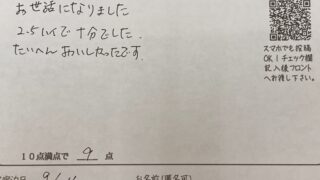 お世話になりました
2.5人で十分でした.
たいへんおいしかったです.
スマホでも投稿
OK!チェック欄
記入後フロント
へお渡し下さい。
10点満点で 9 点
お名前(匿名可)